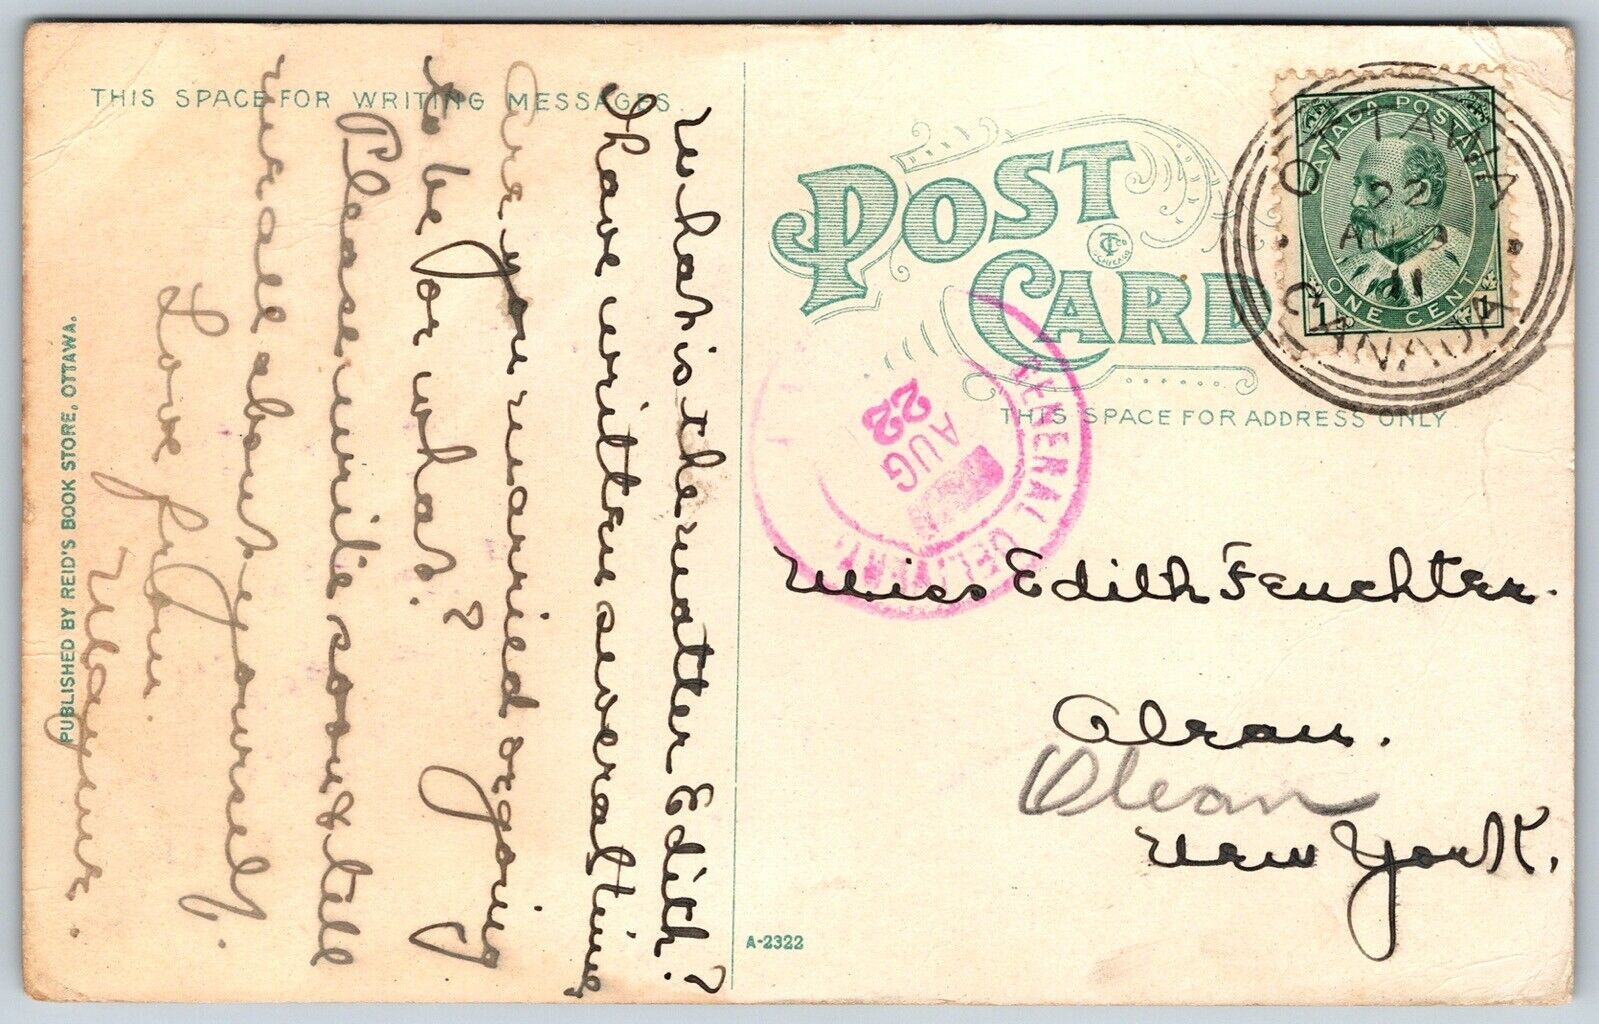 THIS SPACE FOR WRITING MESSAGES
What is the matter Edith?
I have written several times
Are you married or going
to be, or what?
Please write soon & tell
me all about yourself.
Love from
PUBLISHED BY REID'S BOOK STORE, OTTAWA.
POST
CARD
CANADA POSTAGE
ONE CENT
1 1
OTTAWA
22
AU
11
CANADA
GENERAL DELIVERY
AUG
22
THIS SPACE FOR ADDRESS ONLY
Miss Edith Feuchter.
Alean.
Olean
New York.
A-2322